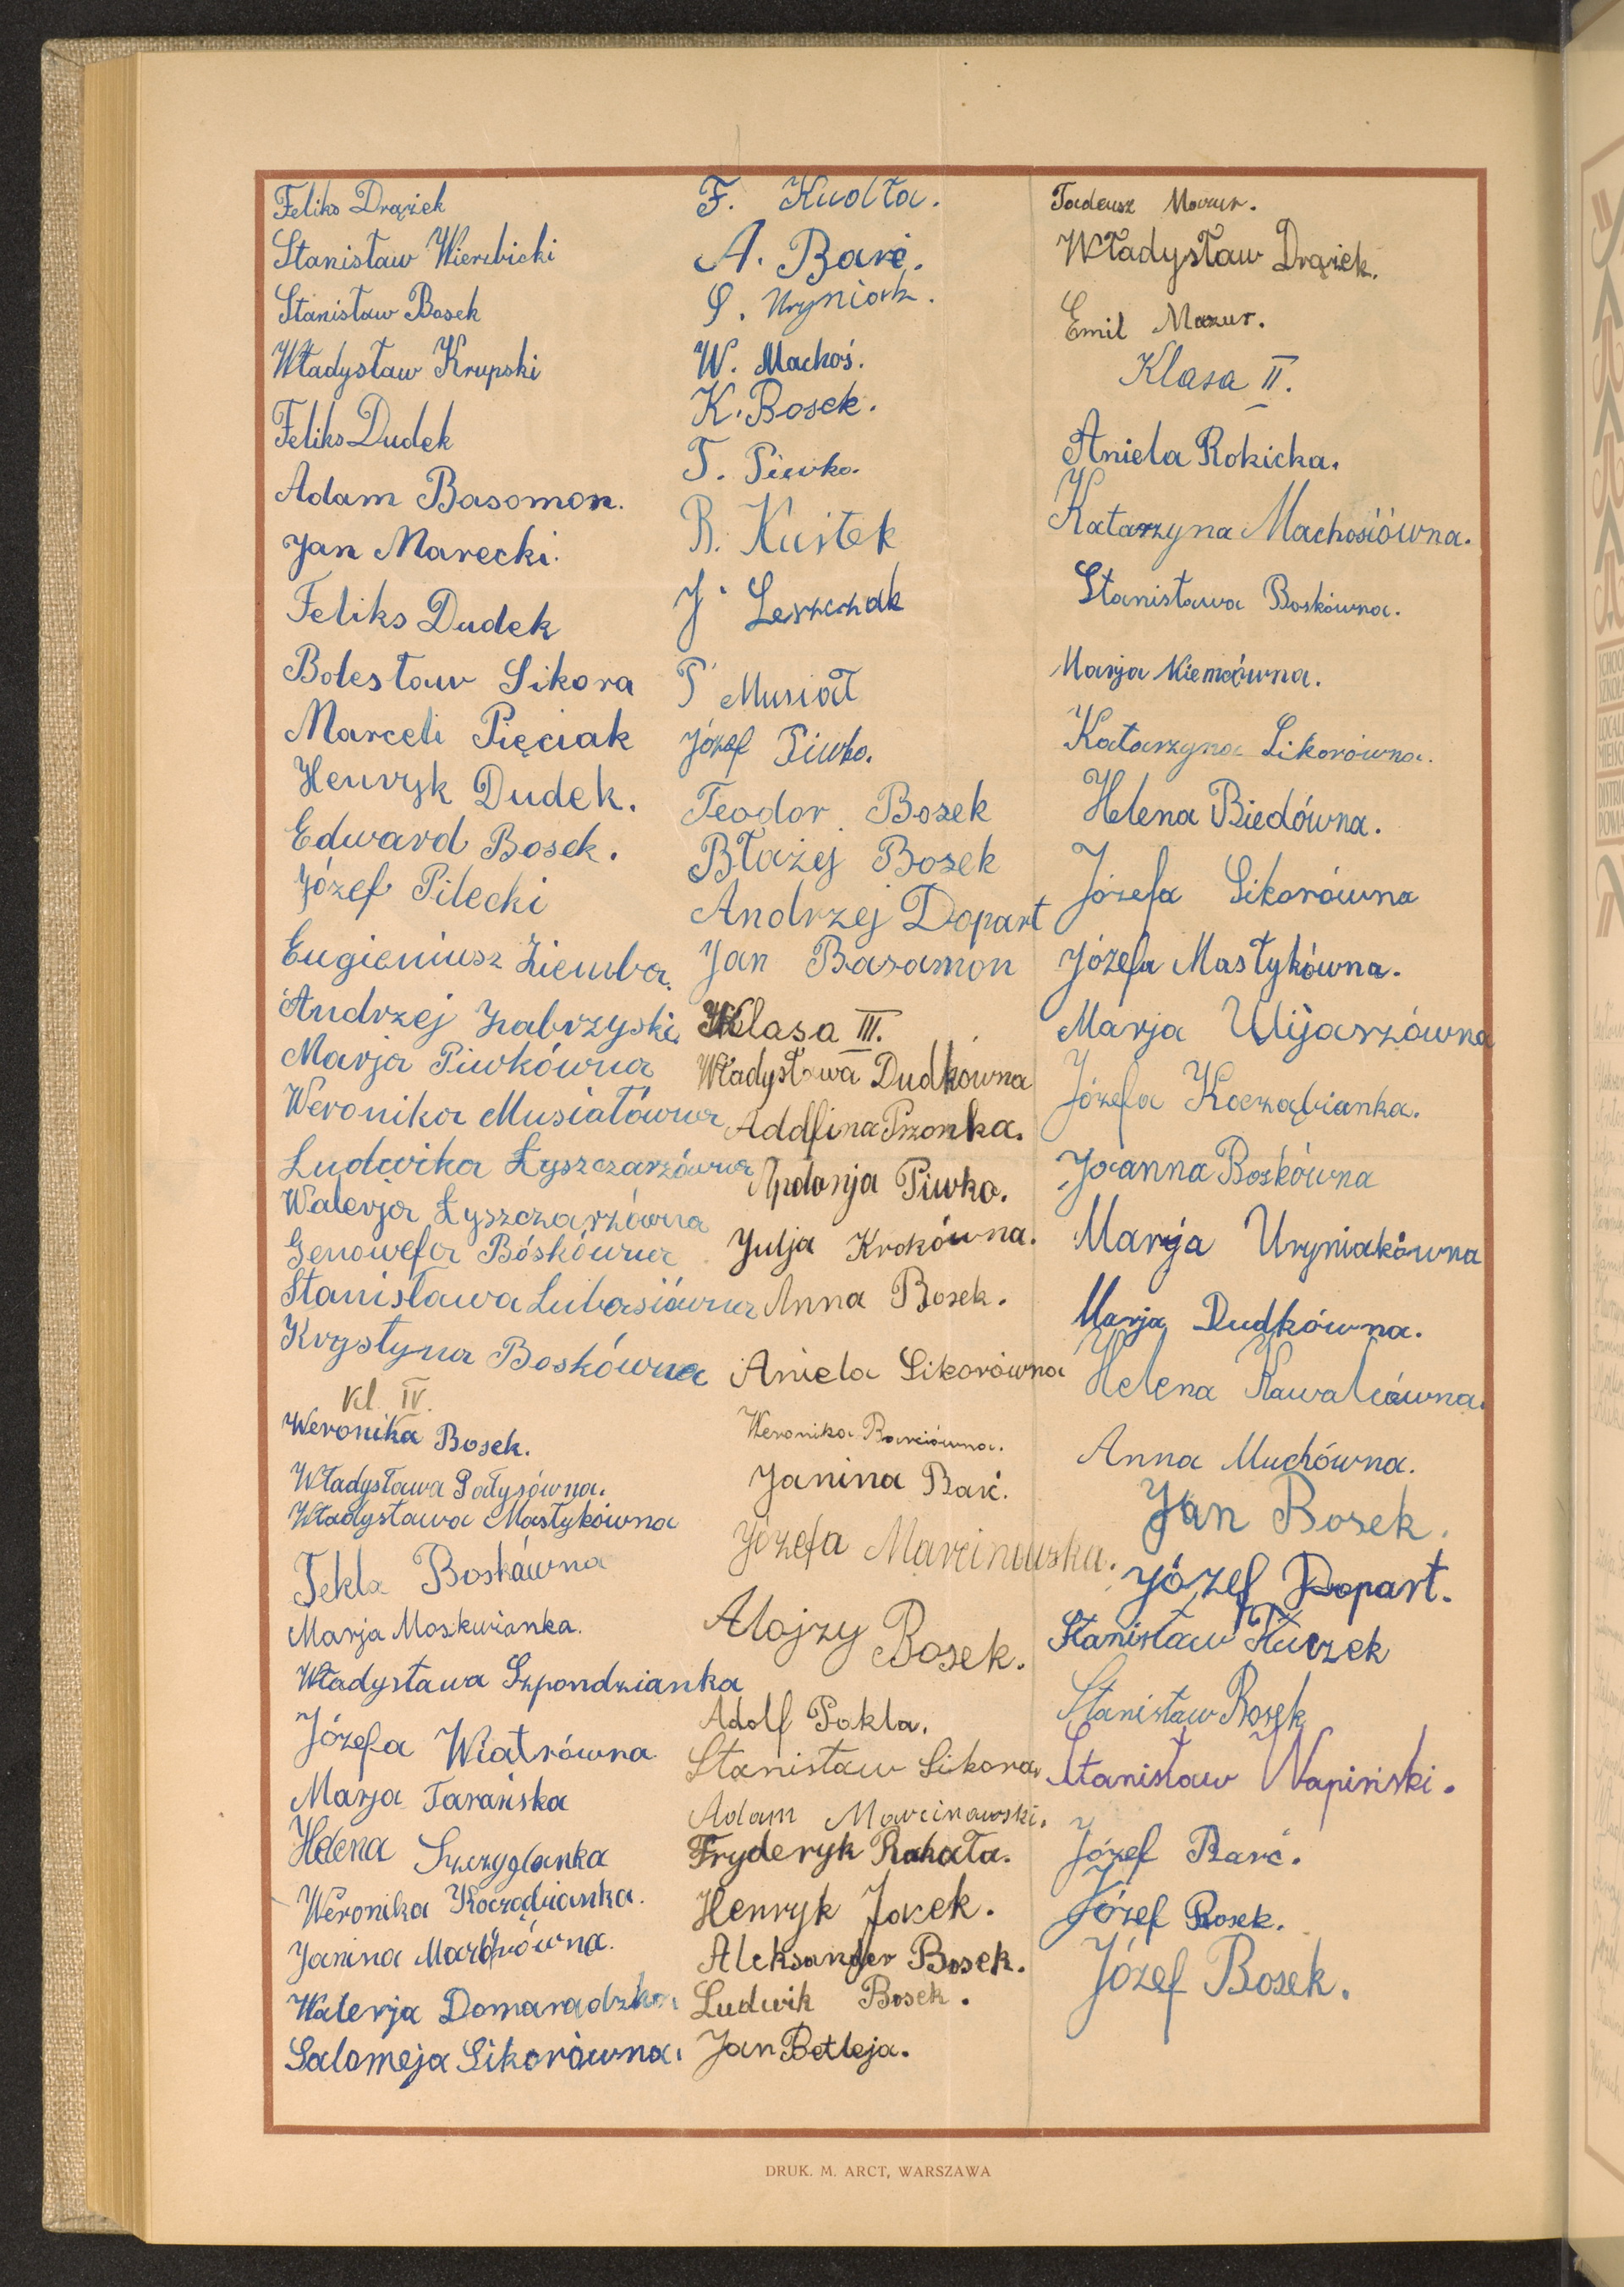 Feliks Drążek
Stanisław Wierzbicki
Stanisław Bosek
Władysław Krupski
Feliks Dudek
Adam Basomon.
Jan Marecki.
Feliks Dudek
Bolesław Sikora
Marceli Pięciak
Henryk Dudek.
Edward Bosek.
Józef Pilecki
Eugieniusz Ziemba.
Andrzej Zabrzyski.
Marja Piwkówna
Weronika Musiałówna
Ludwika Łyszczarzówna
Walerja Łyszczarzówna
Genowefa Bóskówna
Stanisława Lubasiówna
Krystyna Boskówna
Kl. IV.
Weronika Bosek.
Władysława Pałysówna.
Władysława Mastykówna
Tekla Boskówna
Marja Moskwianka.
Władysława Szpondzianka
Józefa Wiatrówna
Marja Tarańska
Helena Szczyglanka
Weronika Koczębianka.
Janina
Walerja Domaradzka
Salomeja Sikorówna.
F. Kudła.
A. Barć.
S. Uryniak.
W. Machoś.
K. Bosek.
T. Piwko.
R. Kusitek
J. Leszczak
T. Musiał
Józef Piwko.
Teodor Bosek
Błażej Bosek
Andrzej Dopart
Jan Basamon
Klasa III.
Władysława Dudkowna
Adolfina Przonka.
Piwko.
Julja Krokówna.
Anna Bosek.
Aniela Sikorówna
Weronika Barciówna.
Janina Barć.
Józefa Marcinowska.
Alojzy Bosek.
Adolf Pokla.
Stanisław Sikora.
Adam Marcinowski.
Fryderyk Rahała.
Henryk Jacek.
Aleksander Bosek.
Ludwik Bosek.
Jan Betleja.
Tadeusz Mazur.
Władysław Drążek.
Emil Mazur.
Klasa II.
Aniela Rokicka.
Katarzyna Machosiówna.
Stanisława Boskówna.
Marja Niemcówna.
Katarzyna Sikorówna.
Helena Biedówna.
Józefa Sikorówna
Józefa Mastykówna.
Marja Ulijaszówna
Józefa Koczębianka.
Joanna Boskówna
Marja Uryniakówna
Marja Dudkówna.
Helena Kawalcówna.
Anna Muchówna.
Jan Bosek.
Józef Dopart.
Stanisław Tłuczek
Stanisław Bosek
Stanisław Wapiński.
Józef Barć.
Józef Bosek.
Józef Bosek.
DRUK. M. ARCT, WARSZAWA